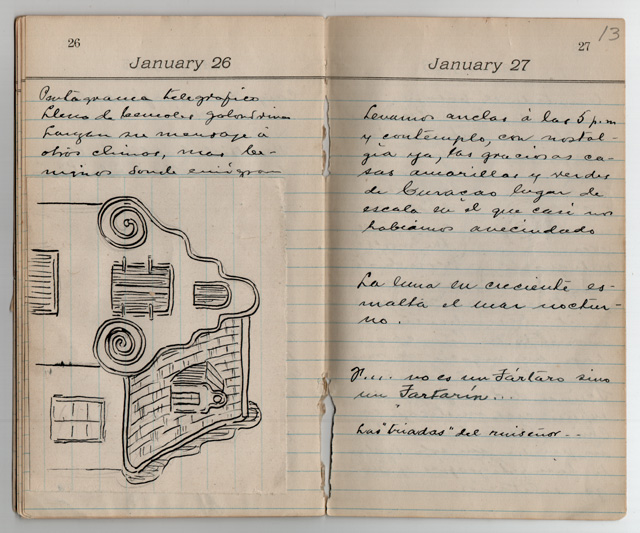 26
January 26
Pentagrama telegrafico
Llena de bemoles golondrina
Lanzan su mensaje á
otros climas, mas be-
nignos donde emigran
13
27
January 27
Levamos anclas á las 5 p.m
y contemplo, con nostal-
gia ya, las graciosas ca-
sas amarillas y verdes
de Curaçao lugar de
escala en el que casi nos
habiamos avecindado
La luna en creciente es-
malta el mar noctur-
no.
no es un Tártaro sino
un Tartarín...
Las "triadas" del ruiseñor...